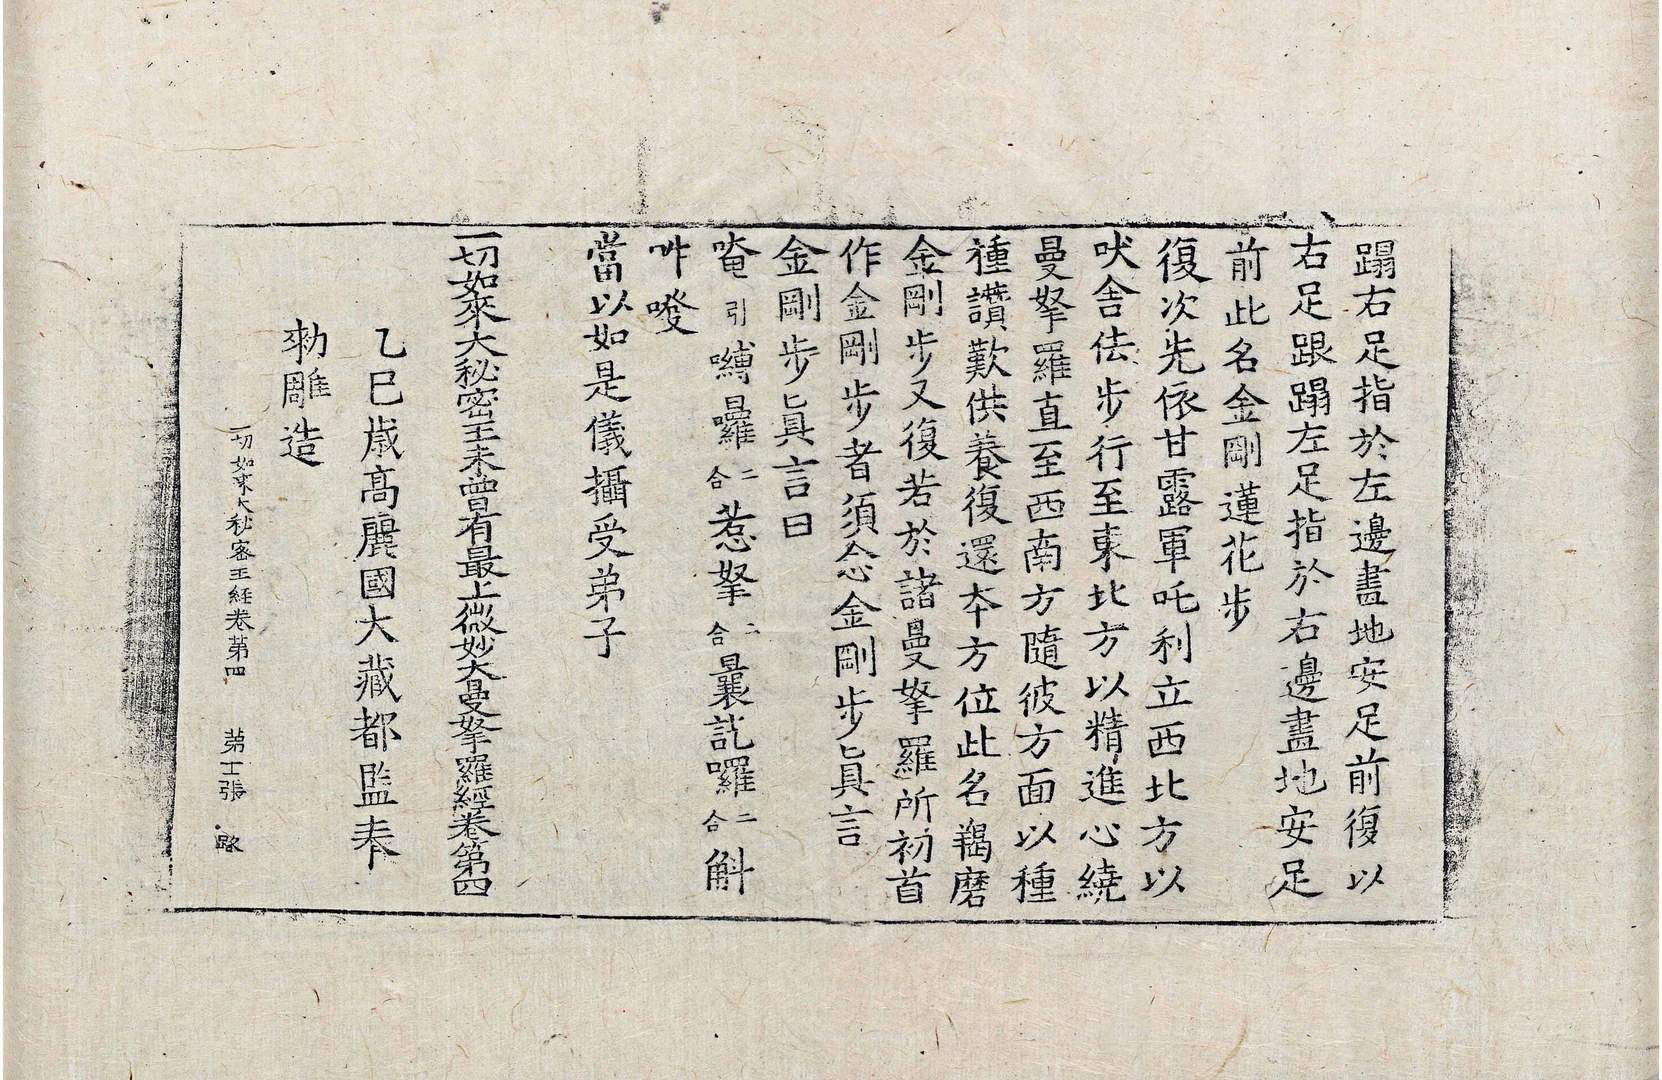 蹋右足指於左邊畫地安足前復以
右足跟蹋左足指於右邊畫地安足
前此名金剛蓮花步
復次先依甘露軍吒利立西北方以
吠舍佉步行至東北方以精進心繞
曼拏羅直至西南方隨彼方面以種
種讚歎供養復還本方位此名羯磨
金剛步又復若於諸曼拏羅所初首
作金剛步者須念金剛步眞言
金剛步眞言曰
唵引嚩日囉二合惹拏二合曩訖囉二合斛
吽㗶
當以如是儀攝受弟子
一切如來大秘密王未曾有最上微妙大曼拏羅經卷第四
乙巳歳高麗國大藏都監奉
勅雕造
一切如來大秘密王經卷第四 第十一張